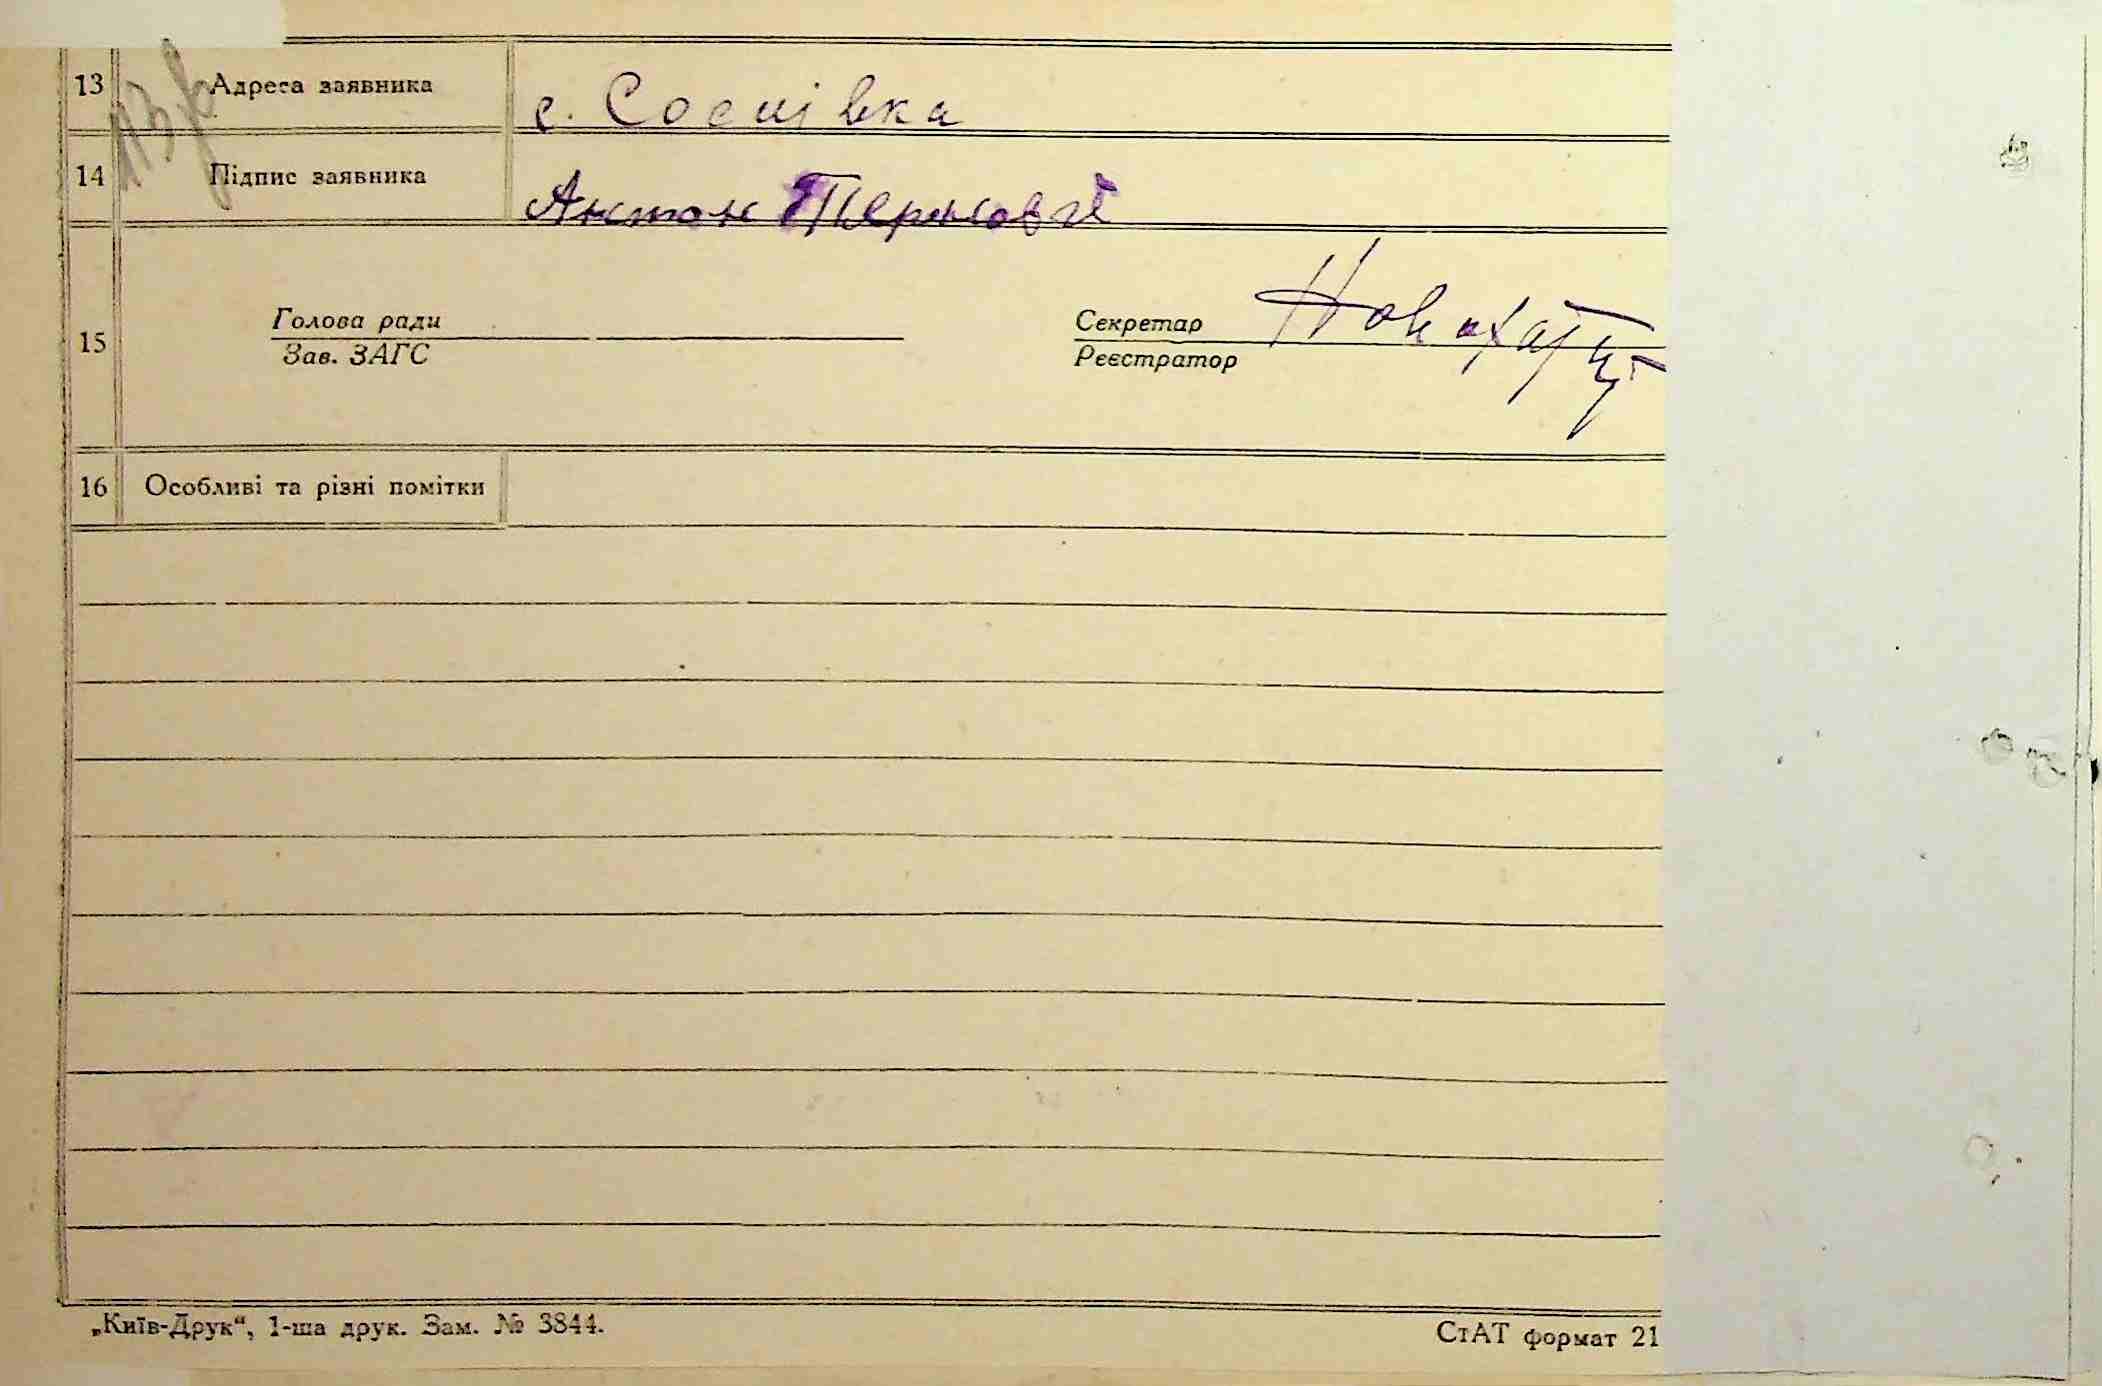 13 Адреса заявника с. Соснівка
14 Підпис заявника Антон Терновий
15 Голова ради Секретар
Зав. ЗАГС Реєстратор
16 Особливі та різні помітки
„Київ-Друк“, 1-ша друк. Зам. № 3844. СтАТ формат 21